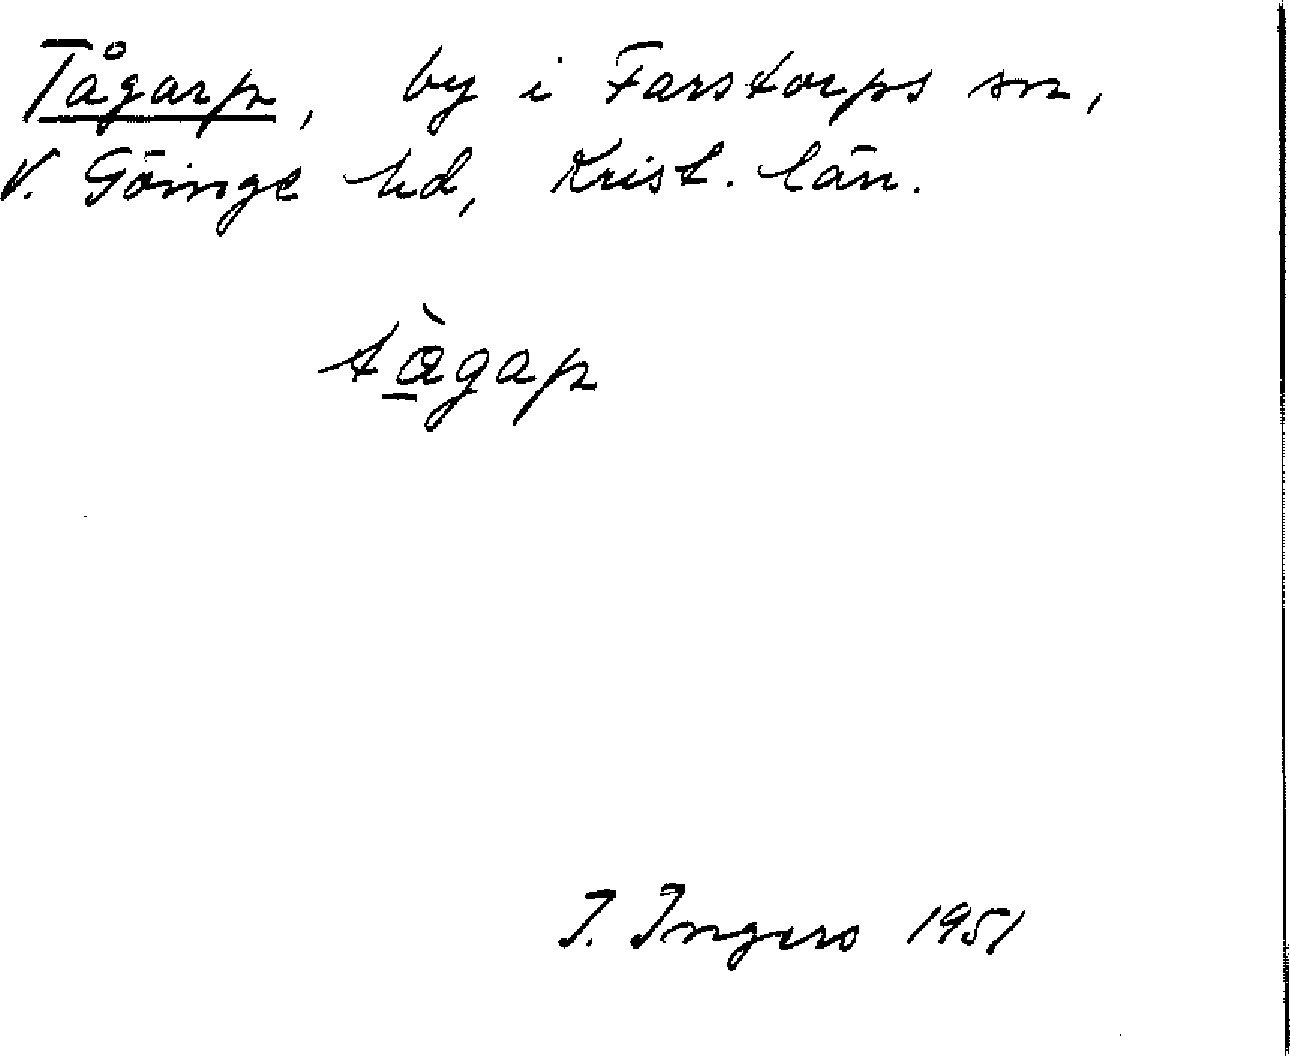 Tågarp, by i Farstorps sn,
V. Göinge hd, Krist. län.
tàgap
I. Ingers 1951